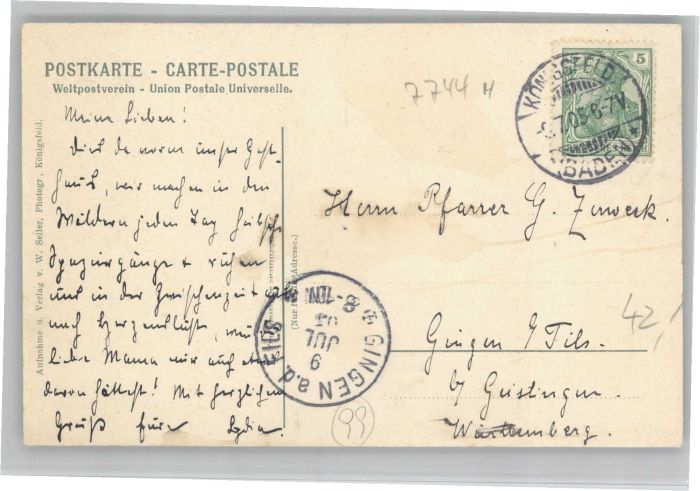 POSTKARTE - CARTE-POSTALE
Weltpostverein - Union Postale Universelle.
7744 H
5
KÖNIGSFELD
7.05.6-7V.
(BADEN)
Aufnahme u. Verlag v. W. Seiler, Photogr., Königsfeld.
(Nur für die Adresse.)
Meine Lieben!
Dies da vorn unser Gast-
haus, wir machen in den
Wäldern jeden Tag hübsche
Spaziergänge + ruhen
uns in der Zwischenzeit
nach Herzenslust,
liebe Mama nur auch etwas
davon hättest! Mit herzlichem
Gruß Eure Lydia.
Herrn Pfarrer G. Zerweck.
Gingen a/Fils.
b/ Geislingen.
Württemberg.
GINGEN a.d. FILS
9
JUL
05
8-
42,
99